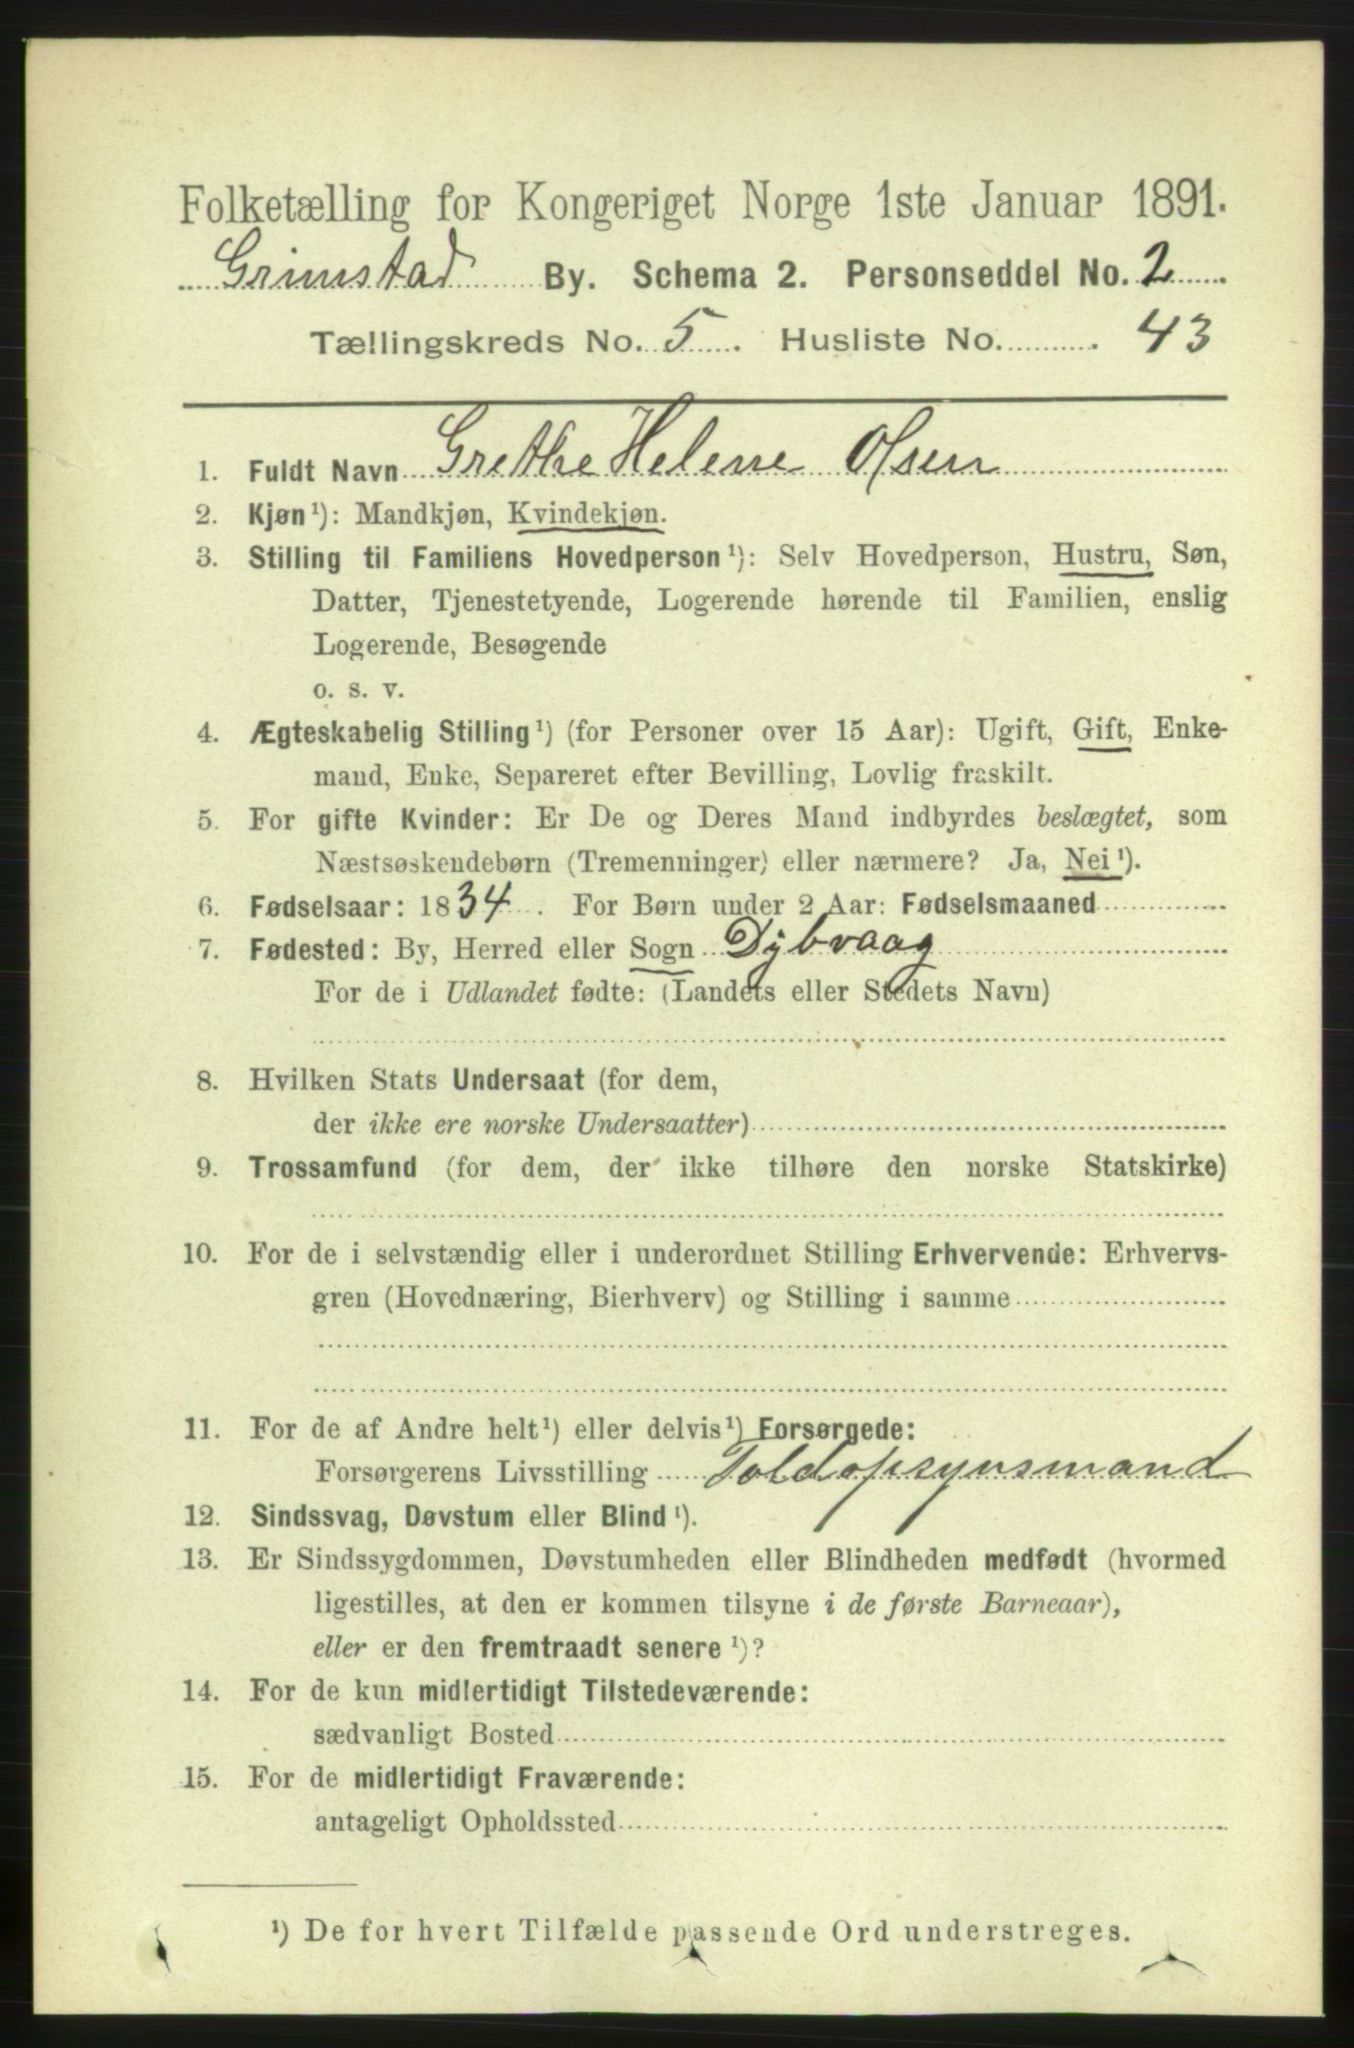 Folketælling for Kongeriget Norge 1ste Januar 1891.
Grimstad By. Schema 2. Personseddel No. 2
Tællingskreds No. 5. Husliste No. 43
1. Fuldt Navn Grethe Helene Olsen
2. Kjøn¹): Mandkjøn, Kvindekjøn.
3. Stilling til Familiens Hovedperson¹): Selv Hovedperson, Hustru, Søn,
Datter, Tjenestetyende, Logerende hørende til Familien, enslig
Logerende, Besøgende
o. s. v.
4. Ægteskabelig Stilling¹) (for Personer over 15 Aar): Ugift, Gift, Enke-
mand, Enke, Separeret efter Bevilling, Lovlig fraskilt.
5. For gifte Kvinder: Er De og Deres Mand indbyrdes beslægtet, som
Næstsøskendebørn (Tremenninger) eller nærmere? Ja, Nei¹).
6. Fødselsaar: 1834. For Børn under 2 Aar: Fødselsmaaned
7. Fødested: By, Herred eller Sogn Dybvaag
For de i Udlandet fødte: (Landets eller Stedets Navn)
8. Hvilken Stats Undersaat (for dem,
der ikke ere norske Undersaatter)
9. Trossamfund (for dem, der ikke tilhøre den norske Statskirke)
10. For de i selvstændig eller i underordnet Stilling Erhvervende: Erhvervs-
gren (Hovednæring, Bierhverv) og Stilling i samme
11. For de af Andre helt¹) eller delvis¹) Forsørgede:
Forsørgerens Livsstilling Toldopsynsmand
12. Sindssvag, Døvstum eller Blind¹).
13. Er Sindssygdommen, Døvstumheden eller Blindheden medfødt (hvormed
ligestilles, at den er kommen tilsyne i de første Barneaar),
eller er den fremtraadt senere¹)?
14. For de kun midlertidigt Tilstedeværende:
sædvanligt Bosted
15. For de midlertidigt Fraværende:
antageligt Opholdssted
¹) De for hvert Tilfælde passende Ord understreges.